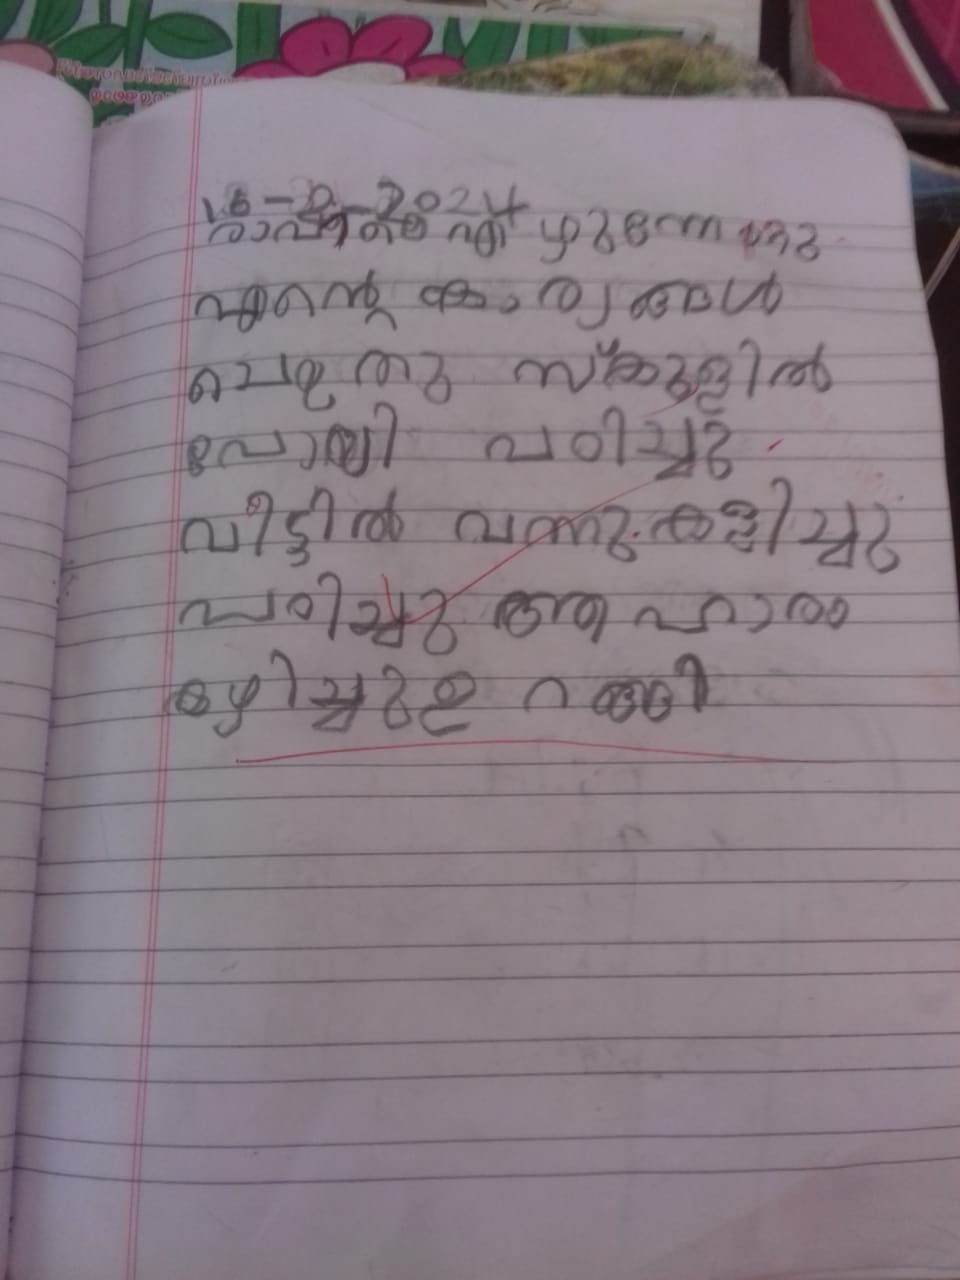 16-2-2024
രാവിലെ എഴുന്നേറ്റു
എന്റെ കാര്യങ്ങൾ
ചെയ്തു സ്കുളിൽ
പോയി പഠിച്ചു
വീട്ടിൽ വന്നു. കളിച്ചു
പഠിച്ചു ആഹാരം
കഴിച്ചുഉറങ്ങി